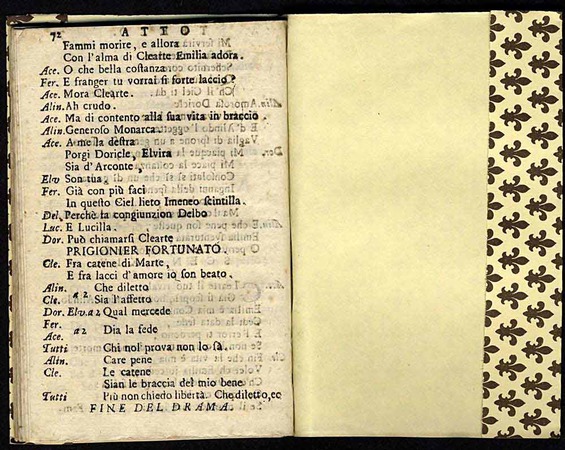 72 ATTO
Fammi morire, e allora
Con l'alma di Clearte Emilia adora.
Ace. O che bella costanza.
Fer. E franger tu vorrai sì forte laccio?
Ace. Mora Clearte.
Alin. Ah crudo.
Ace. Ma di contento alla sua vita in braccio.
Alin. Generoso Monarca.
Ace. A me la destra
Porgi Doricle, Elvira
Sia d'Arconte.
Elv. Son tua.
Fer. Già con più faci
In questo Ciel lieto Imeneo scintilla.
Del. Perchè la congiunzion Delbo
Luc. E Lucilla.
Dor. Può chiamarsi Clearte
PRIGIONIER FORTUNATO.
Cle. Fra catene di Marte,
E fra lacci d'amore io son beato.
Alin. Che diletto
Cle. a 2 Sia l'affetto
Dor. Elv. a 2 Qual mercede
Fer.
a 2 Dia la fede
Ace.
Tutti Chi nol prova non lo sà.
Alin. Care pene
Cle. Le catene
Sian le braccia del mio bene
Tutti Più non chiedo libertà. Che diletto, ec
FINE DEL DRAMA.